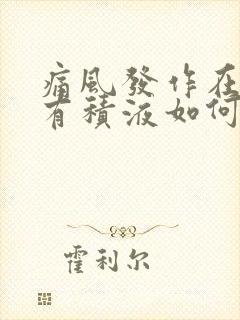 痛風發作在
有積液如何
霍利尔